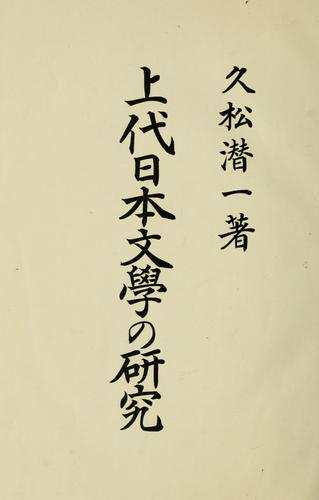 久松潛一著
上代日本文學の研究